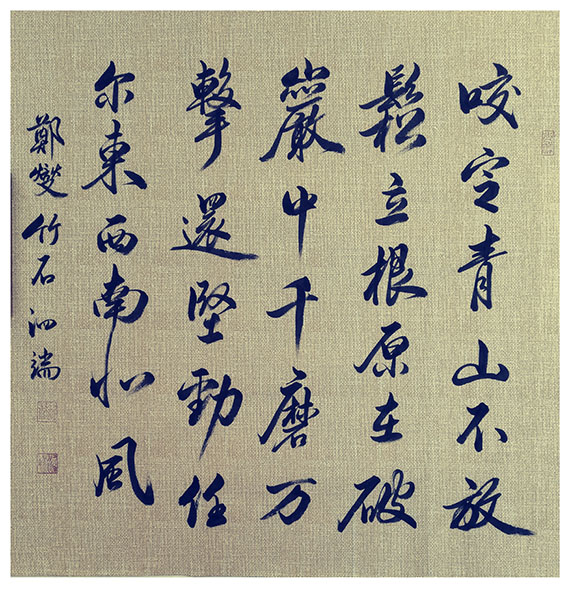 咬定青山不放
鬆立根原在破
巖中千磨万
擊還堅勁任
尔東西南北風
鄭燮竹石泗端